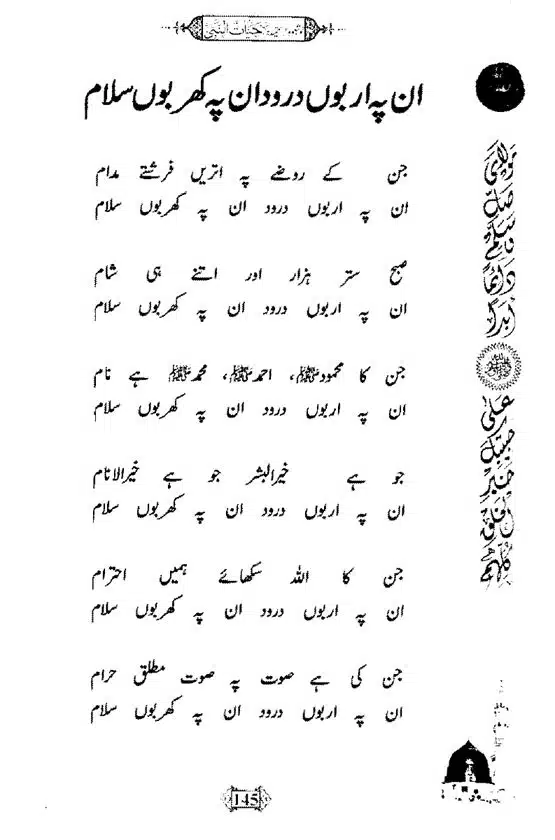 حیات النبی
ان پہ اربوں درود ان پہ کھربوں سلام
جن کے روضے پہ اتریں فرشتے مدام
ان پہ اربوں درود ان پہ کھربوں سلام
صبح ستر ہزار اور اتنے ہی شام
ان پہ اربوں درود ان پہ کھربوں سلام
جن کا محمودﷺ، احمدﷺ، محمدﷺ ہے نام
ان پہ اربوں درود ان پہ کھربوں سلام
جو ہے خیرالبشر جو ہے خیرالانام
ان پہ اربوں درود ان پہ کھربوں سلام
جن کا اللہ سکھائے ہمیں احترام
ان پہ اربوں درود ان پہ کھربوں سلام
جن کی ہے صوت پہ صوت مطلق حرام
ان پہ اربوں درود ان پہ کھربوں سلام
مولای صل وسلم دائما ابدا
ﷺ
علی حبیبک خیر الخلق کلهم
145